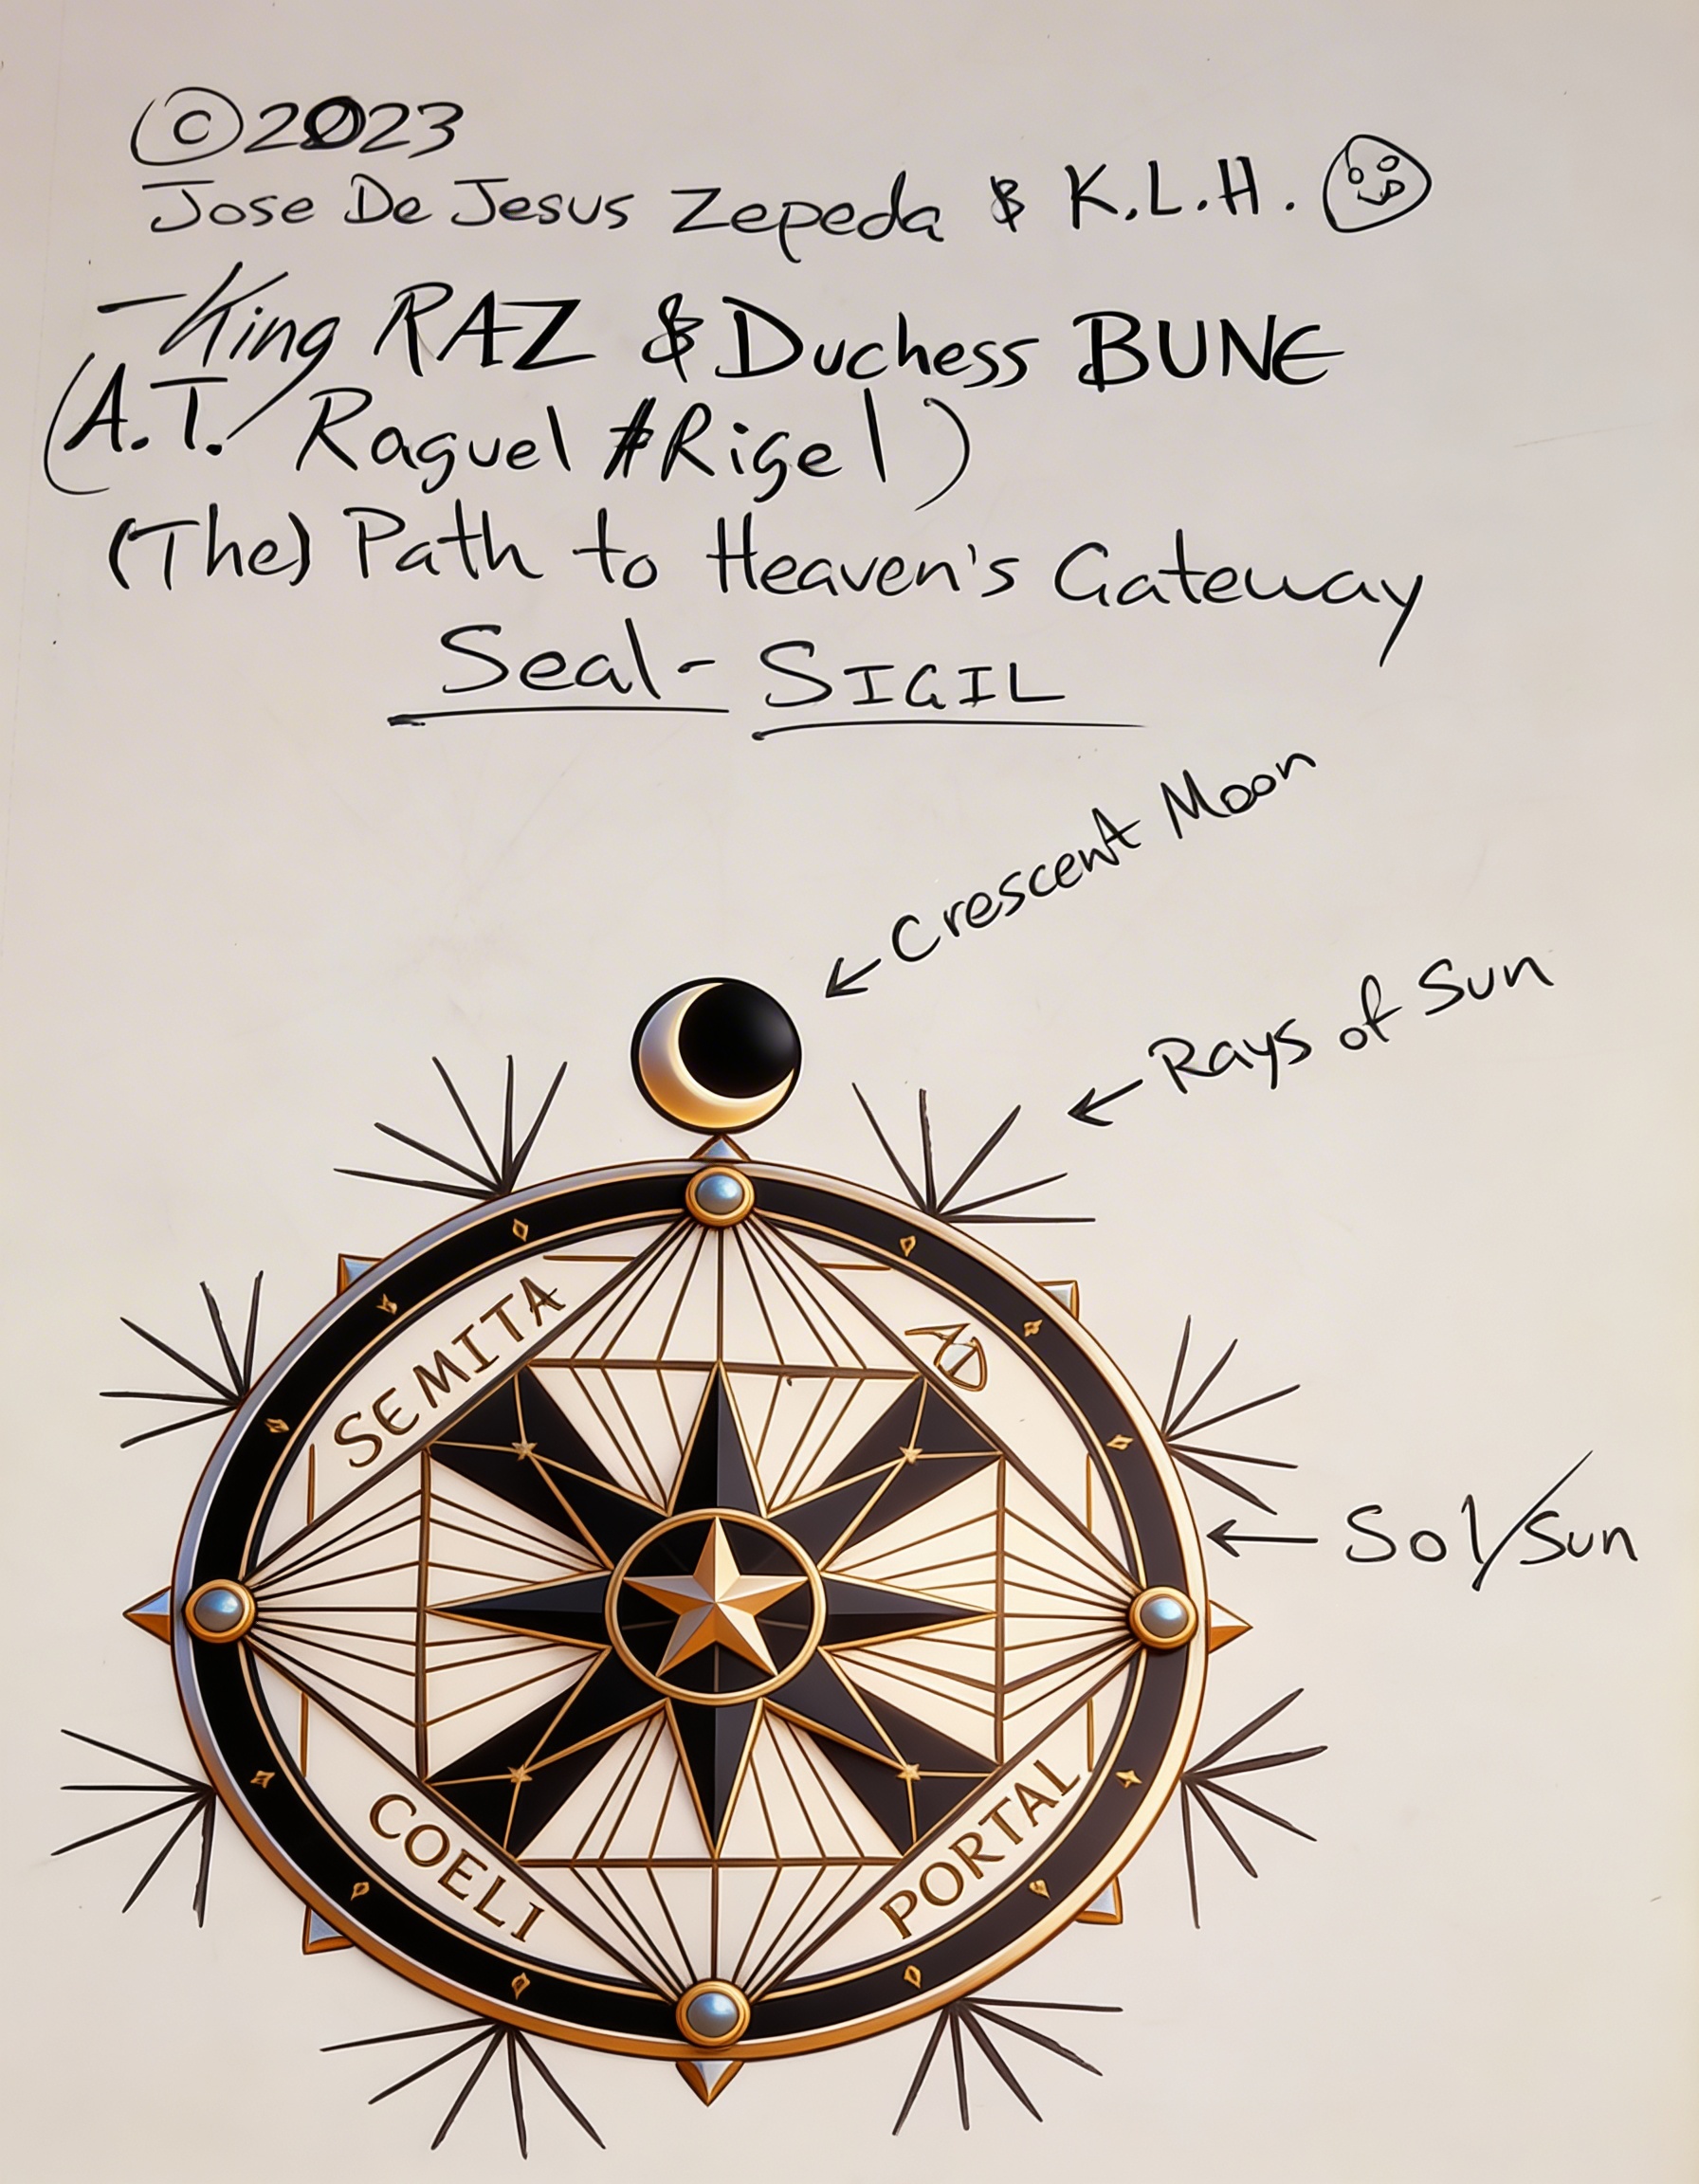 ©2023
Jose De Jesus Zepeda & K.L.H.
-King RAZ & Duchess BUNE
(A.T. Raguel #Rigel)
(The) Path to Heaven's Gateway
Seal- SIGIL
Crescent Moon
Rays of Sun
SEMITA
AD
Sol/Sun
COELI
PORTAL